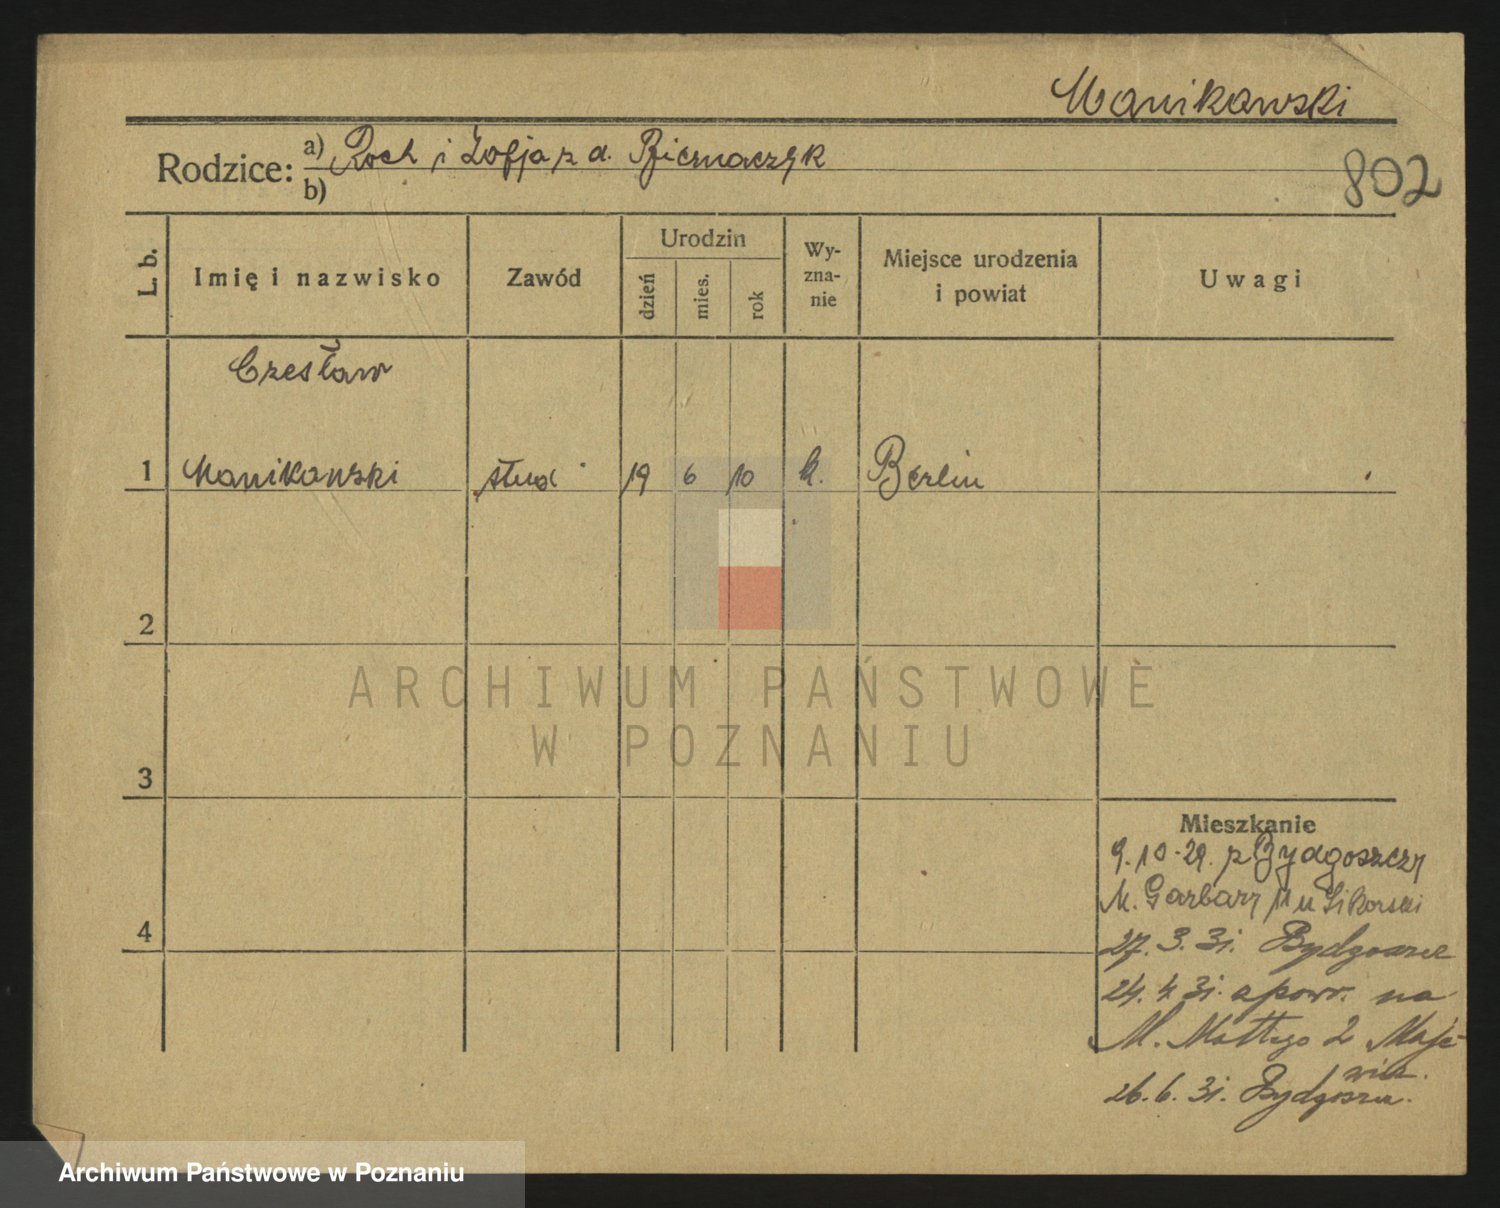 Manikowski
Rodzice: a) Roch i Zofja z d. Biernaczyk
b)
802
L. b. Imię i nazwisko Zawód Urodzin dzień mies. rok Wy-zna-nie Miejsce urodzenia i powiat Uwagi
Czesław
1 Manikowski stud 19 6 10 k. Berlin
2
ARCHIWUM PAŃSTWOWE
W POZNANIU
3
Mieszkanie
9.10.29. z Bydgoszczy
M. Garbary 11 u Sikorski
4
27. 3. 31. Bydgoszcz
24. 4. 31. z powr. na
M. Mottego 2
26. 6. 31. Bydgoszcz.
Archiwum Państwowe w Poznaniu